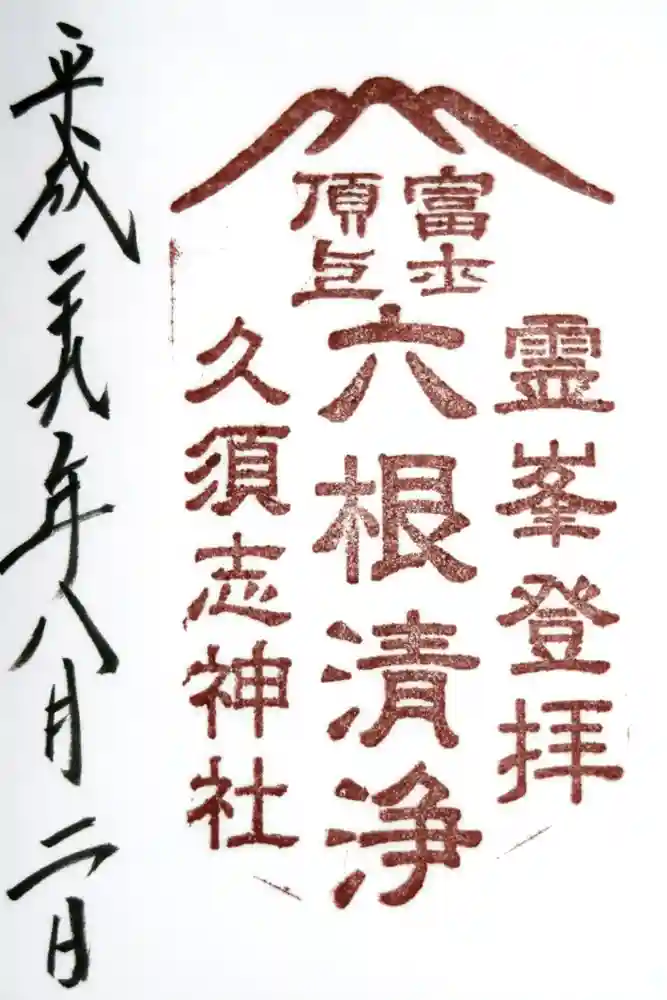 富士
頂上
霊峯登拝
六根清浄
久須志神社
平成二十九年八月二日